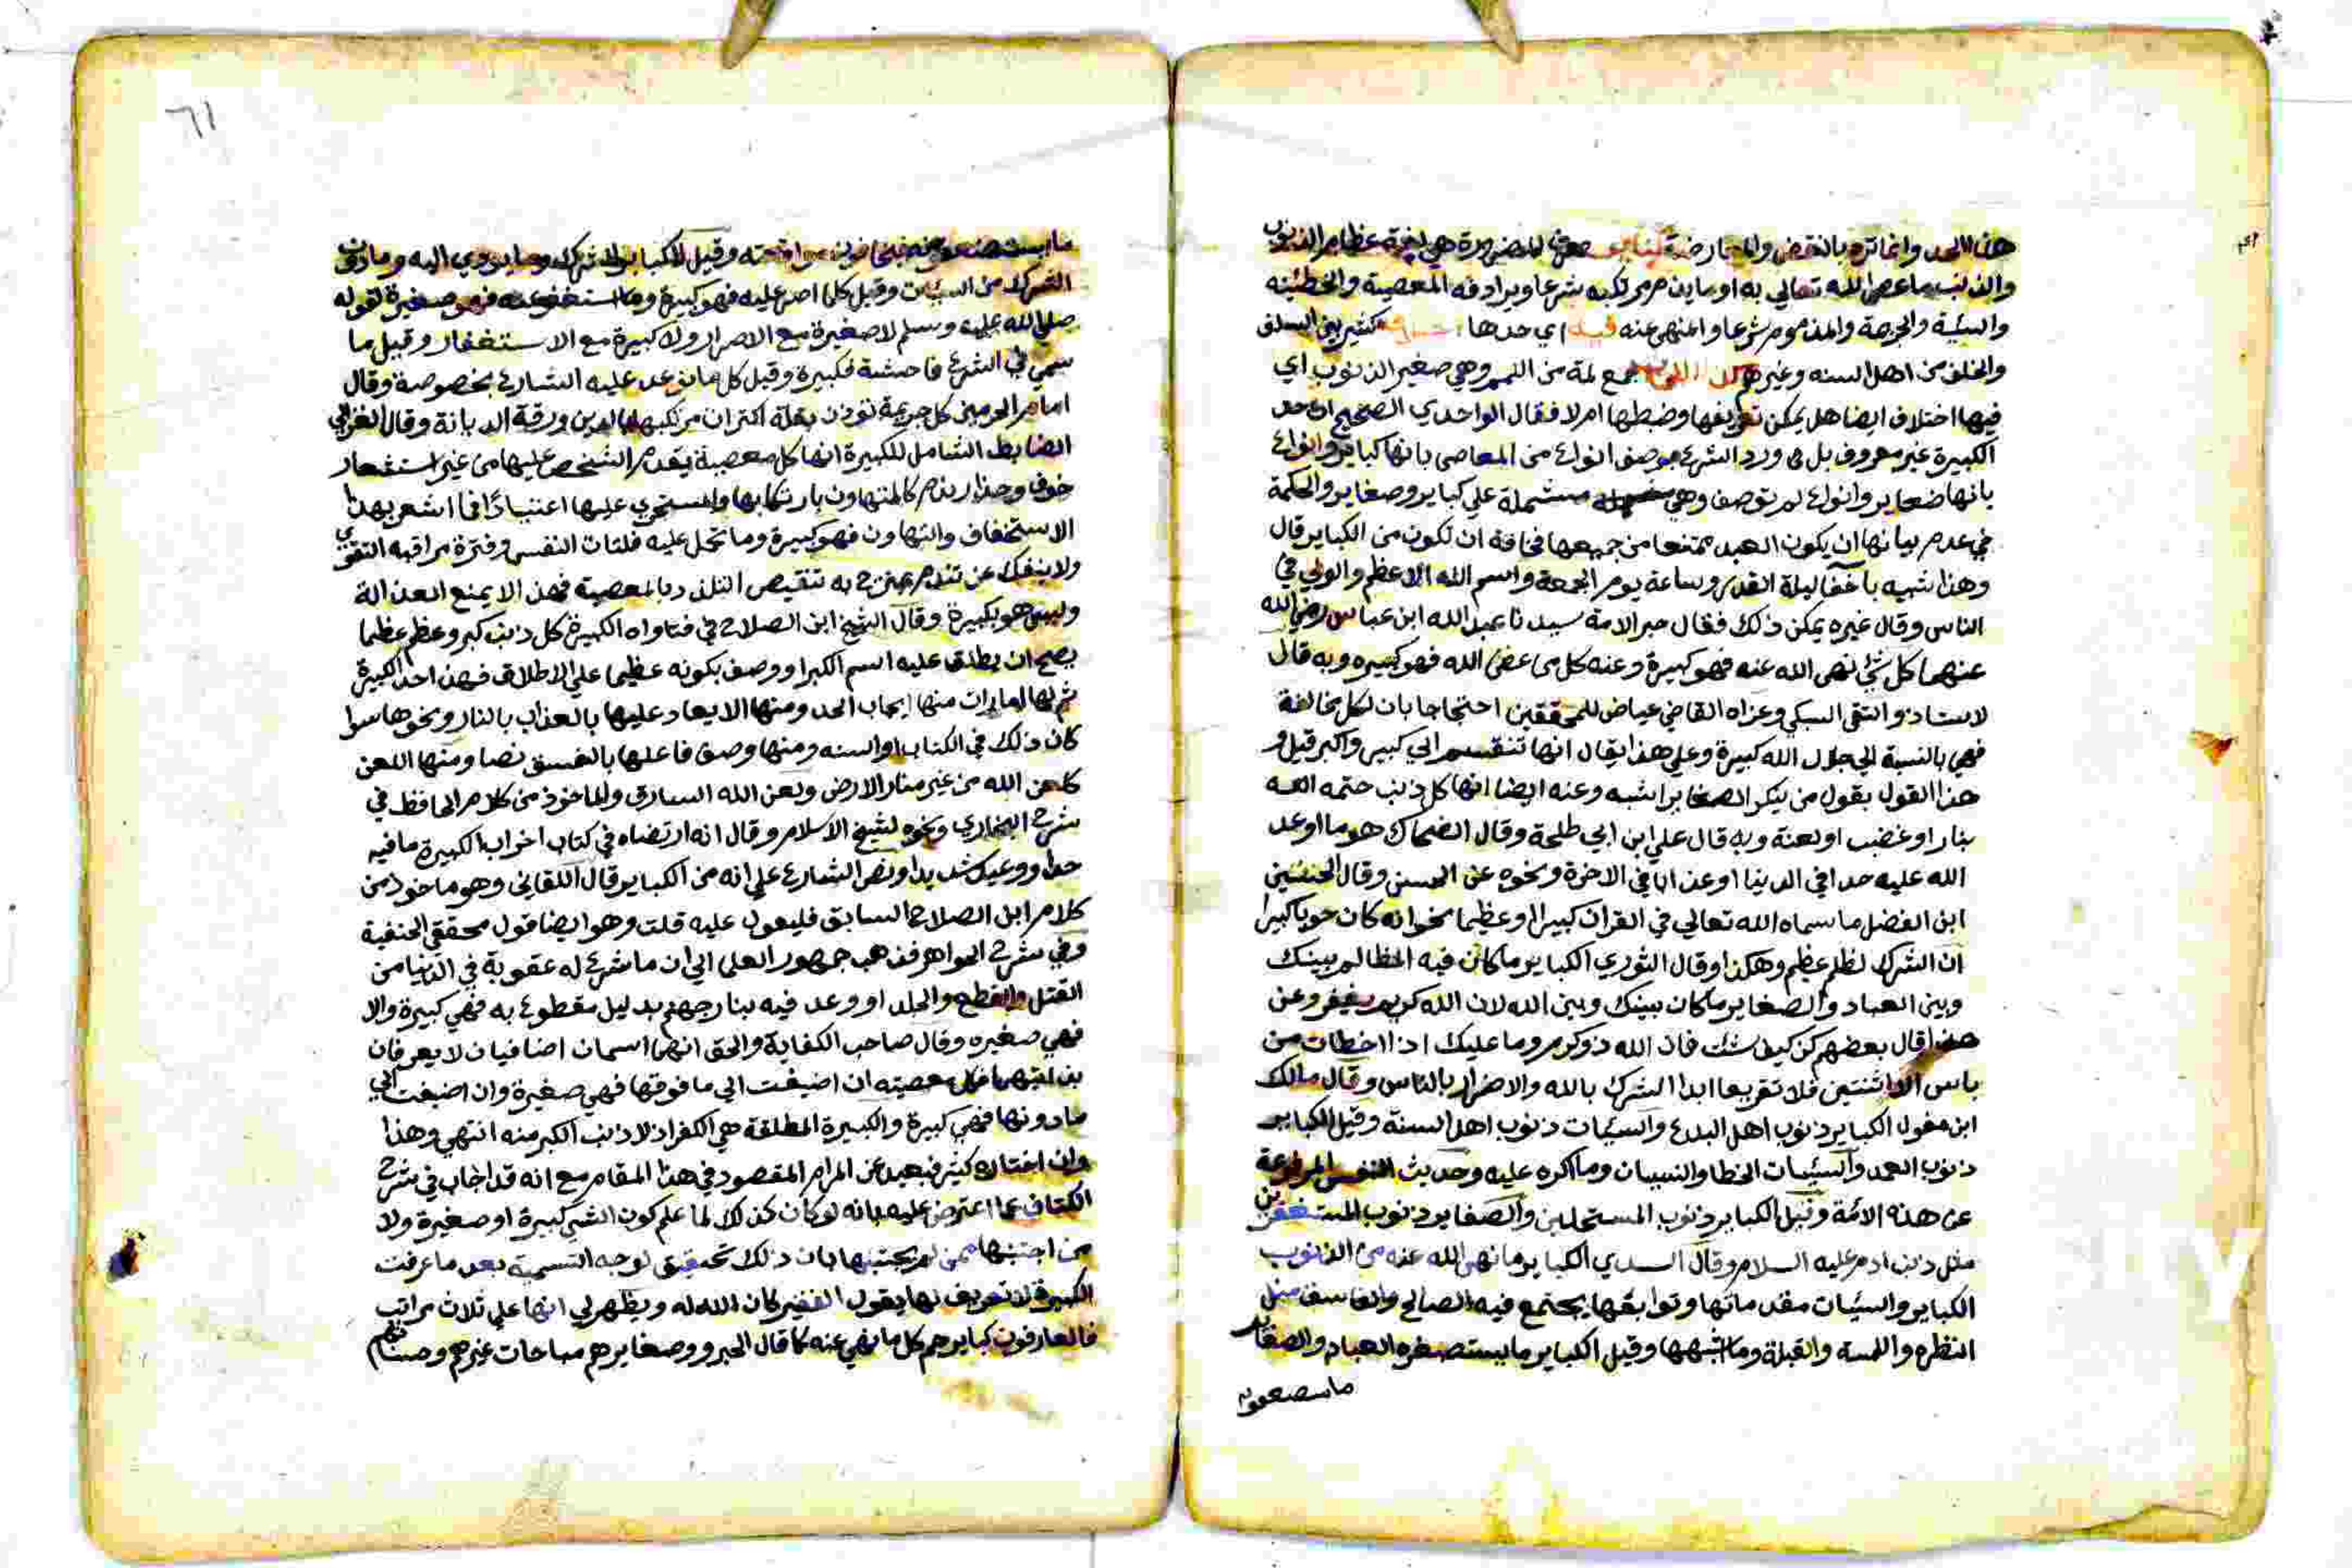 هذا الحد وانما تره بالنقض والمعارضة لغة عظام الذنوب
والذنب ما عصي الله تعالي به او ما يذم مرتكبه شرعا ويرادفه المعصية والخطئية
والسيئة والجريمة والمذموم شرعا والمنهي عنه اي حدها كثير من السلف
والخلف من اهل السنه وغيرهم جمع لمة من اللمم وهي صغير الذنوب اي
فيها اختلاف ايضا هل يمكن تعريفها وضبطها ام لا فقال الواحدي الصحيح ان حد
الكبيرة غير معروف بل ورد الشرع بوصف انواع من المعاصي بانها كباير وانواع
بانها صغاير وانواع لم توصف وهي مشتملة علي كباير وصغاير والحكمة
في عدم بيانها ان يكون العبد ممتنعا من جميعها مخافة ان تكون من الكباير قال
وهذا شبيه باخفا ليلة القدر وساعة يوم الجمعة واسم الله الاعظم والولي في
الناس وقال غيره يمكن ذلك فقال حبر الامة سيدنا عبد الله ابن عباس رضي الله
عنهما كل شئ نهي الله عنه فهو كبيرة وعنه كل ما عصي الله فهو كبيره وبه قال
لاستاذ والتقي السبكي وعزاه القاضي عياض للمحققين احتجاجا بان لكل مخالفة
فهي بالنسبة الي جلال الله كبيرة وعلي هذا يقال انها تنقسم الي كبير واكبر قيل و
هذا القول بقول من ينكر الصغاير اشبه وعنه ايضا انها كل ذنب ختمه الله
بنار او غضب او لعنة وبه قال علي ابن ابي طلحة وقال الضحاك هو ما اوعد
الله عليه حدا في الدنيا او عذابا في الاخرة ونحوه عن الحسن وقال الحسين
ابن الفضل ما سماه الله تعالي في القران كبيرا او عظيما نحو انه كان حوبا كبيرا
ان الشرك لظلم عظيم وهكذا وقال الثوري الكباير ما كان فيه المظالم بينك
وبين العباد والصغاير ما كان بينك وبين الله لان الله كريم يغفر وعن
هذا قال بعضهم كن كيف شئت فان الله ذو كرم وما عليك اذا اخطات من
باس الا اثنتين فلا تقربهما ابدا الشرك بالله والاضرار بالناس وقال مالك
ابن مغول الكباير ذنوب اهل البدع والسيئات ذنوب اهل السنة وقيل الكباير
ذنوب العمد والسيئات الخطا والنسيان وما اكره عليه وحديث النفس المرفوعة
عن هذه الامة وقيل الكباير ذنوب المستحلين والصغاير ذنوب المستغفرين
مثل ذنب ادم عليه السلام وقال السدي الكباير ما نهي الله عنه من الذنوب
الكباير والسيئات مقدماتها وتوابعها يجتمع فيه الصالح والفاسق مثل
النظره واللمسة والقبلة وما اشبهها وقيل الكباير ما يستصغره العباد والصغاير
ما يستصعبونه
٦١
ما يستصعبونه فيخافون مواقعته وقيل الكباير الشرك وما يودي اليه وما دون
الشرك من السيئات وقيل كلما اصر عليه فهو كبيرة وما استغفر عنه فهو صغيرة لقوله
صلي الله عليه وسلم لا صغيرة مع الاصرار ولا كبيرة مع الاستغفار وقيل ما
سمي في الشرع فاحشة فكبيرة وقيل كل ما توعد عليه الشارع بخصوصه وقال
امام الحرمين كل جريمة توذن بقلة اكتراث مرتكبها بالدين ورقة الديانة وقال الغزالي
الضابط الشامل للكبيرة انها كل معصية يقدم الشخص عليها من غير استشعار
خوف وحذار ندم كالمتهاون بارتكابها والمستجري عليها اعتيادا فما اشعر بهذا
الاستخفاف والتهاون فهو كبيرة وما تحمل عليه فلتات النفس وفترة مراقبه التقوي
ولا ينفك عن تندم يمتزج به تنقيص التلذذ بالمعصية فهذا لا يمنع العدالة
وليس هو بكبيرة وقال الشيخ ابن الصلاح في فتاواه الكبيرة كل ذنب كبر وعظم عظما
يصح ان يطلق عليه اسم الكبر او وصف بكونه عظيما علي الاطلاق فهذا حد الكبيرة
ثم لها امارات منها ايجاب الحد ومنها الايعاد عليها بالعذاب بالنار ونحوها سوا
كان ذلك في الكتاب او السنه ومنها وصف فاعلها بالفسق نصا ومنها اللعن
كلعن الله من غير منار الارض ولعن الله السارق والماخوذ من كلام الحافظ في
شرح البخاري ونحوه لشيخ الاسلام وقال انه ارتضاه في كتاب اخر ان الكبيرة ما فيه
حد او وعيد شديد او نص الشارع علي انه من الكباير قال اللقاني وهو ماخوذ من
كلام ابن الصلاح السابق فليعول عليه قلت وهو ايضا قول محققي الحنفية
وفي شرح الجواهر فذهب جمهور العلما الي ان ما شرع له عقوبة في الدنيا من
القتل والقطع والجلد او وعد فيه بنار جهنم بدليل مقطوع به فهي كبيرة والا
فهي صغيره وقال صاحب الكفاية والحق انهما اسمان اضافيان لا يعرفان
بذاتيهما فكل معصيته ان اضيفت الي ما فوقها فهي صغيرة وان اضيفت الي
ما دونها فهي كبيرة والكبيرة المطلقة هي الكفر اذ لا ذنب اكبر منه انتهي وهذا
وان اختاره كثير فبعيد عن المرام المقصود في هذا المقام مع انه قد اجاب في شرح
الكشاف عما اعترض عليه بانه لو كان كذلك لما علم كون الشئ كبيرة او صغيرة ولا
من اجتنبها ممن لم يجتنبها بان ذلك تحقيق لوجه التسمية بعد ما عرفت
الكبيرة لا تعريف لها يقول الفقير كان الله له ويظهر لي انها علي ثلاث مراتب
فالعارفون كبايرهم كل ما نهي عنه كما قال الحبر وصغايرهم مباحات غيرهم